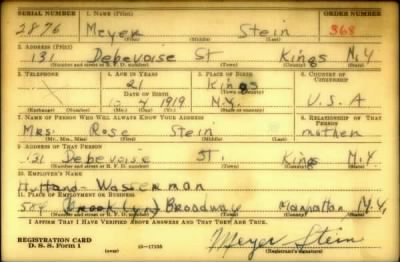 SERIAL NUMBER 1. NAME (Print) ORDER NUMBER
2876 Meyer Stein 368
(First) (Middle) (Last)
2. ADDRESS (Print)
131 Debevoise St Kings N.Y
(Number and street or R. F. D. number) (Town) (County) (State)
3. TELEPHONE 4. AGE IN YEARS 5. PLACE OF BIRTH 6. COUNTRY OF CITIZENSHIP
21 Kings
DATE OF BIRTH (Town or county)
10 7 1919 N.Y. U.S.A
(Exchange) (Number) (Mo.) (Day) (Yr.) (State or country)
7. NAME OF PERSON WHO WILL ALWAYS KNOW YOUR ADDRESS 8. RELATIONSHIP OF THAT PERSON
Mrs. Rose Stein mother
(Mr., Mrs., Miss) (First) (Middle) (Last)
9. ADDRESS OF THAT PERSON
131 Debevoise St. Kings N.Y.
(Number and street or R. F. D. number) (Town) (County) (State)
10. EMPLOYER'S NAME
Wasserman
11. PLACE OF EMPLOYMENT OR BUSINESS
Broadway Manhattan N.Y.
(Number and street or R. F. D. number) (Town) (County) (State)
I AFFIRM THAT I HAVE VERIFIED ABOVE ANSWERS AND THAT THEY ARE TRUE.
REGISTRATION CARD
D. S. S. Form 1 Meyer Stein
(Registrant's signature)